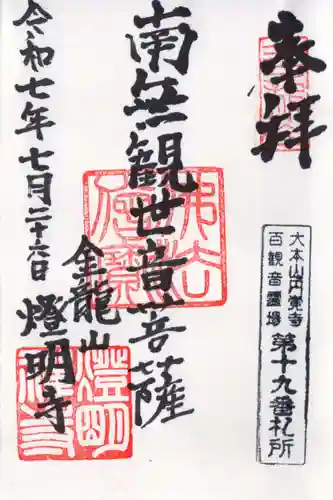 奉拝
大本山円覚寺
百観音霊場
第十九番札所
南無観世音菩薩
金龍山
燈明寺
令和七年七月二十六日
佛法僧寳
燈明禅寺